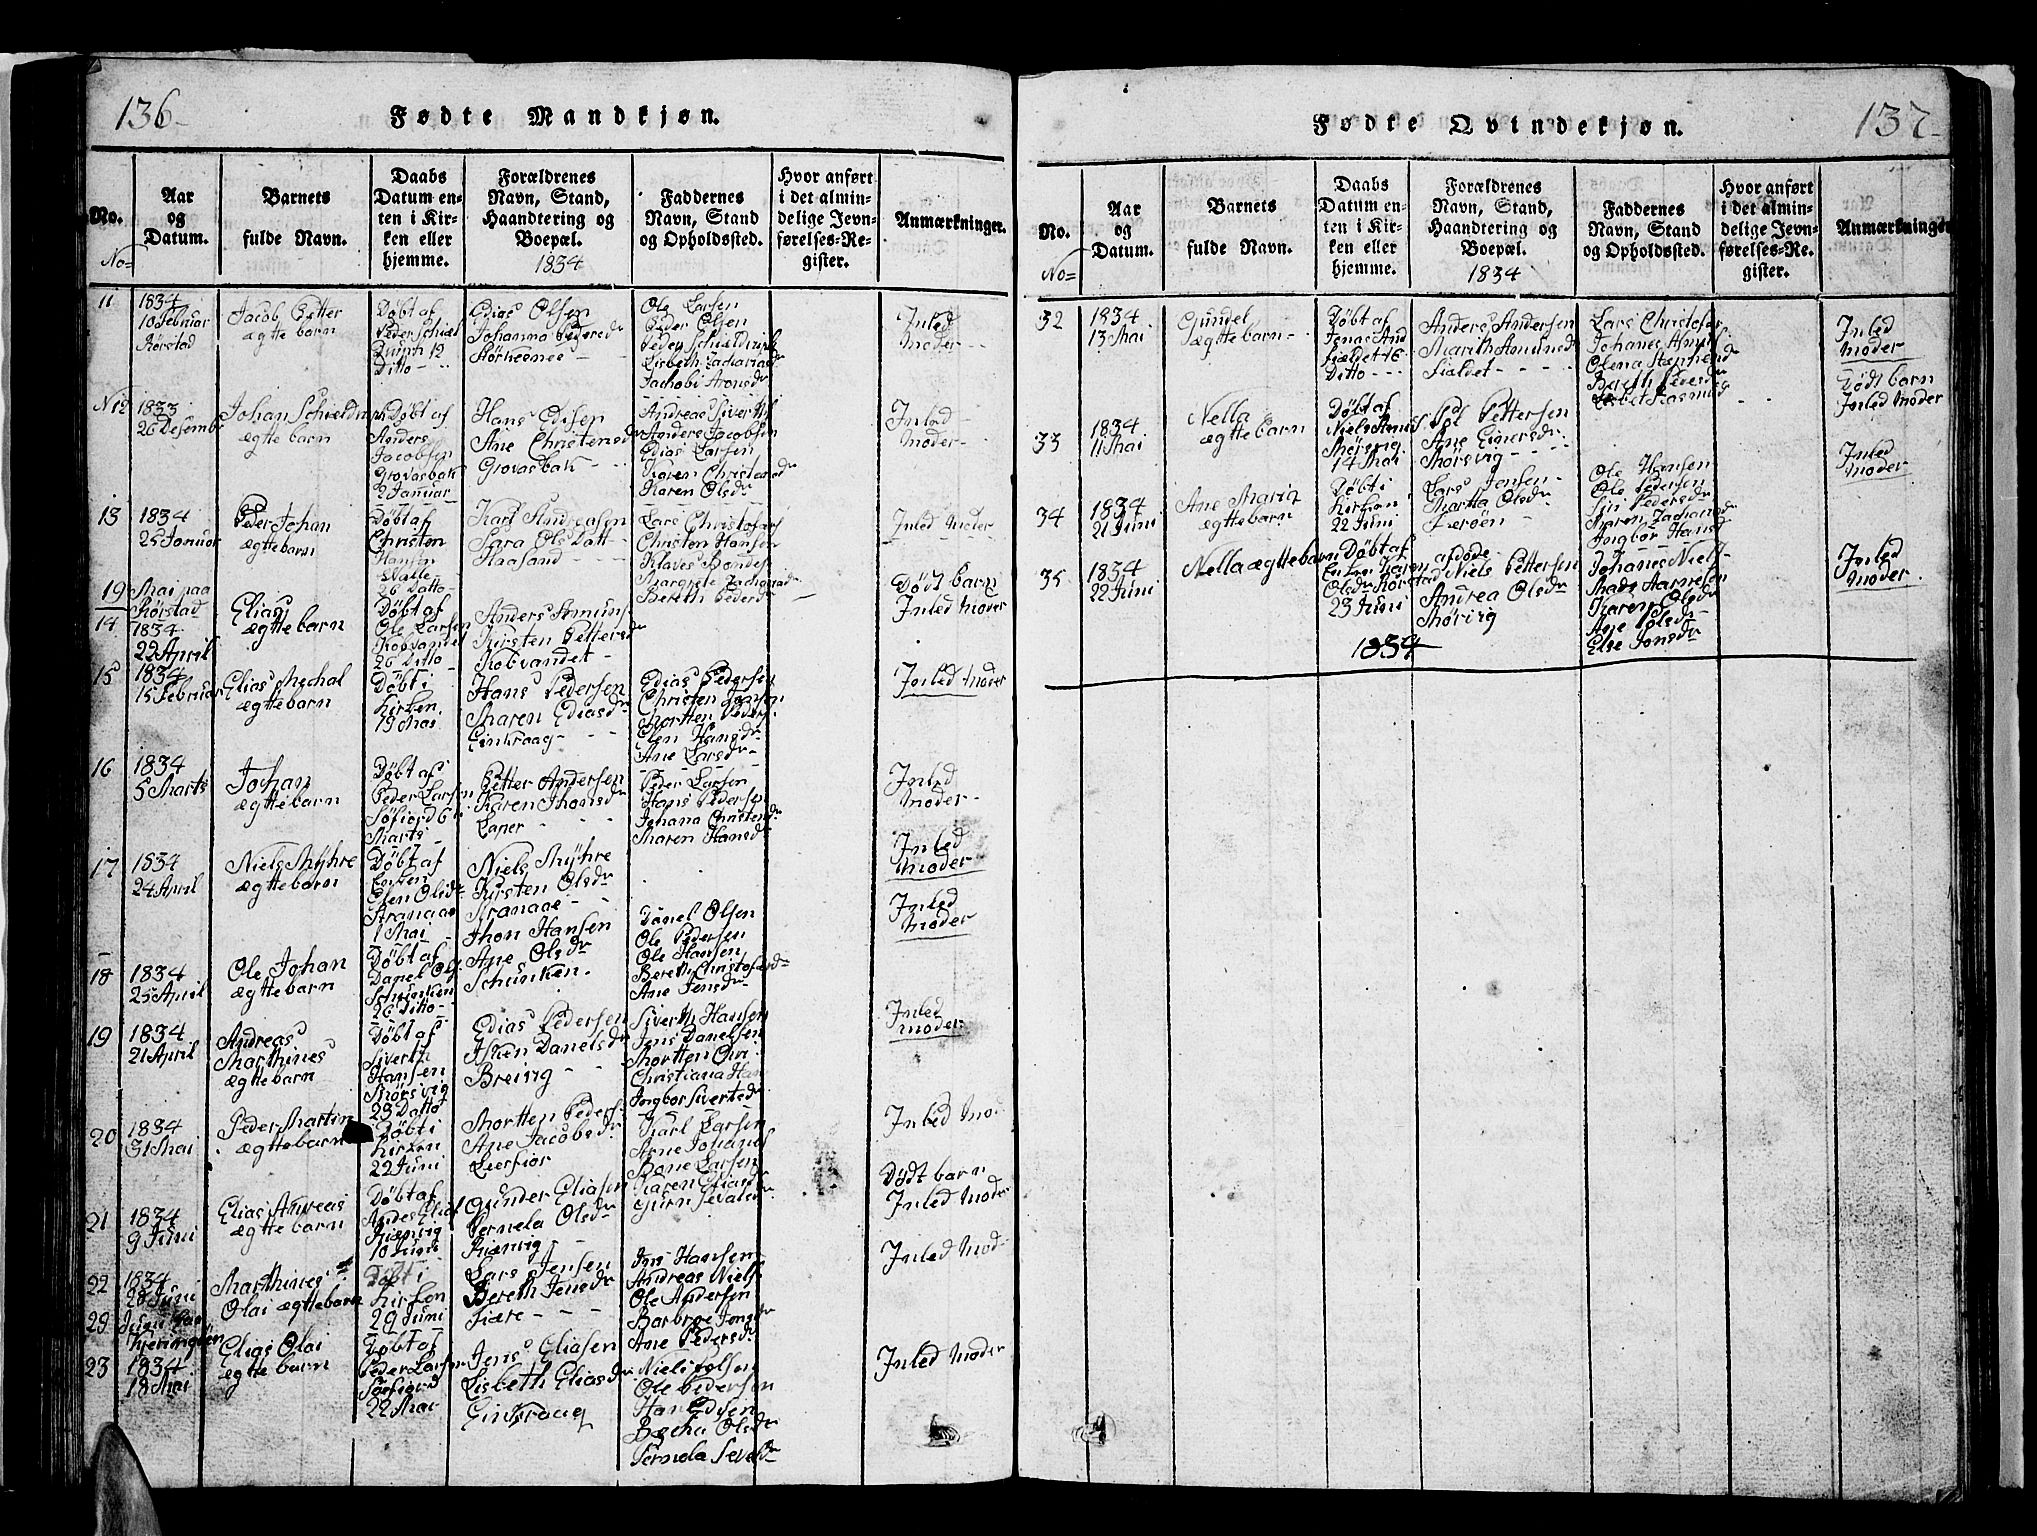 136
Fødte Mandkjøn.
No.
Aar
og
Datum.
Barnets
fulde Navn.
Daabs
Datum en-
ten i Kir-
ken eller
hjemme.
Forældrenes
Navn, Stand,
Haandtering og
Boepæl.
1834
Faddernes
Navn, Stand
og Opholdssted.
Hvor anført
i det almin-
delige Jevn-
førelses-Re-
gister.
Anmærkninger.
No=
11
1834
10 Februar
Rørstad
Jacob Petter
ægtte barn
Døbt af
Peder Schield
12
Ditto
Edias Olsen
Johanna Pedersdr
Ole Larsen
Peder Olsen
Lisbeth Zachariasdr
Jachobi Aronsdr
Inled
Moder
N12
1833
26 Desembr
ægtte barn
Døbt af
Anders
Jacobsen
Grovasbak
2 Januar
Hans Edisen
Ane Christensdr
Grovasbak
Andreas Sivertsn
Anders Jacobsen
Edias Larsen
Karen Christensdr
Karen Olsdr
Inled
Moder
13
1834
25 Januar
Peder Johan
ægtte barn
Døbt af
Christen
Hansen
26 Datto
Karl Andreasen
Sara Ols Datt
Haasand
Lars Christofers
Christen Hansen
Klaves Bondes
Margrete
Bereth Pedersdr
Inled Moder
19
Mai paa
Rørstad
14
1834
22 April
Elias
ægtte barn
Døbt af
Ole Larsen
Kobvandet
26 Ditto
Anders Amuns
Kirsten Pettersdr
Kobvandet
Dødt barn
Inled Moder
15
1834
15 Februar
Elias Mechal
ægtte barn
Døbt i
kirken
19 Mai
Hans Pedersen
Maren Ediasdr
Einkraag
Edias Pedersen
Christen Jonsen
Mortten Peders
Elen Hansdr
Ane Larsdr
Inled Moder
16
1834
5 Marts
Johan
ægtte barn
Døbt af
Peder Larsen
Søfiord 6
Marts
Petter Andersen
Karen Thomsdr
Laper
Peder Larsen
Hans Pedersen
Johana Christensdr
Maren Hansdr
Inled
Moder
17
1834
24 April
Niels Myhre
ægtte barn
Døbt af
Enken
Elen Olsdr
Aranaae
1 Mai
Niels Myhre
Kirsten Olsdr
Aranaae
Inled
Moder
18
1834
25 April
Ole Johan
ægtte barn
Døbt af
Danel Ols
Schunken
26 Ditto
Thon Hansen
Ane Olsdr
Schunken
Danel Olsen
Ole Pedersen
Ole Hansen
Bereth Christofersdr
Ane Jensdr
Inled
Moder
19
1834
21 April
Andreas
Marthines
ægtte barn
Døbt af
Siverth
Hansen
Mørsvig
23 Datto
Edias Pedersen
Danelsdr
Breivig
Siverth Hansen
Jens Danelsen
Mortten
Christiana Han
Ingbor Sivertsdr
Inled
Moder
20
1834
31 Mai
Peder Martin
ægtte barn
Døbt i
kirken
22 Juni
Mortten Peders
Ane Jacobsdr
Leerfior
Karl Larsen
Arne Johanes
Larsen
Karen Eliasdr
Inled Mod
21
1834
9 Juni
Elias Andreas
ægtte barn
Døbt af
Andes Elias
10 Juni
Gunder Eliasen
Pernela Olsdr
Dødt barn
Inled Moder
22
1834
28 Juni
Marthines
Olai ægtte barn
Døbt i
kirken
29 Juni
Lars Jensen
Bereth Jensdr
Jens Hansen
Andreas Niels
Ole Andersen
Barbroe Jonsdr
Ane Pedersdr
Inled Mod
29
Juni paa
Kjeringøen
23
1834
18 Mai
Elias Olai
ægtte barn
Døbt af
Peder Larsen
Sørfiord
22 Mai
Jens Eliasen
Lisbeth Eliasdr
Einkraag
Niels
Ole Pedersen
Hans Edisen
Olsdr
Pernela
Inled Moder
137
Fødte Qvindekjøn.
No.
Aar
og
Datum.
Barnets
fulde Navn.
Daabs
Datum en-
ten i Kir-
ken eller
hjemme.
Forældrenes
Navn, Stand,
Haandtering og
Boepæl.
1834
Faddernes
Navn, Stand
og Opholdssted.
Hvor anført
i det almin-
delige Jevn-
førelses-Re-
gister.
Anmærkninger
No=
32
1834
13 Mai
Gundel
ægtte barn
Døbt af
Jenas And
fialdet 16
Ditto
Anders Andersen
Marith Amunsdr
Fialdet
Lars Christofer
Johanes
Olena
Bareth Pedersdr
Lisbet Rasmusd
Inled
Moder
33
1834
11 Mai
Nella
ægtte barn
Døbt af
Niels
Mørsvig
14 Mai
Pol Pettersen
Ane Einersdr
Mørsvig
Dødt barn
Inled Moder
34
1834
21 Juni
Ane Maria
ægtte barn
Døbt i
kirken
22 Juni
Lars Jensen
Martta Olsdr
Ole Hansen
Ole Pedersen
Siri Pedersdr
Maren Zachariasd
Ingbor Hansd
Inled
Moder
35
1834
22 Juni
Nella ægtte barn
Døbt af
Enken Karen
Olsdr Rørstad
23 Juni
afdøde
Niels Pettersen
Andrea Olsdr
Mørvig
Johanes Niels
Mads Aarnesen
Karen Olsdr
Ane Polsdr
Else Jonsdr
Inled
Moder
1834